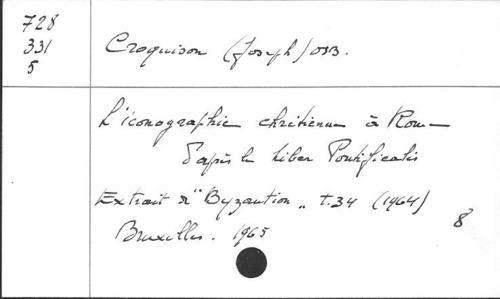 728
331
5
Croquison (Joseph) OSB.
L'iconographie chrétienne à Rome
d'après le Liber Pontificalis
Extrait de "Byzantion" t.34 (1964)
8°
Bruxelles. 1965